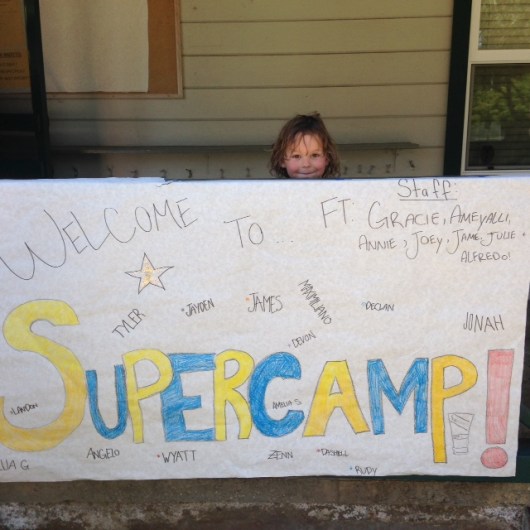 WELCOME TO... FT.
Staff:
GRACIE, AMEYALLI,
ANNIE, JOEY, JAME, JULIE &
ALFREDO!
TYLER
JAYDEN
JAMES
MAXMILIANO
DECLAN
JONAH
DEVON
SUPERCAMP!
LANDON
AMELIA S.
LIA G
ANGELO
WYATT
ZENN
DASHELL
RUDY